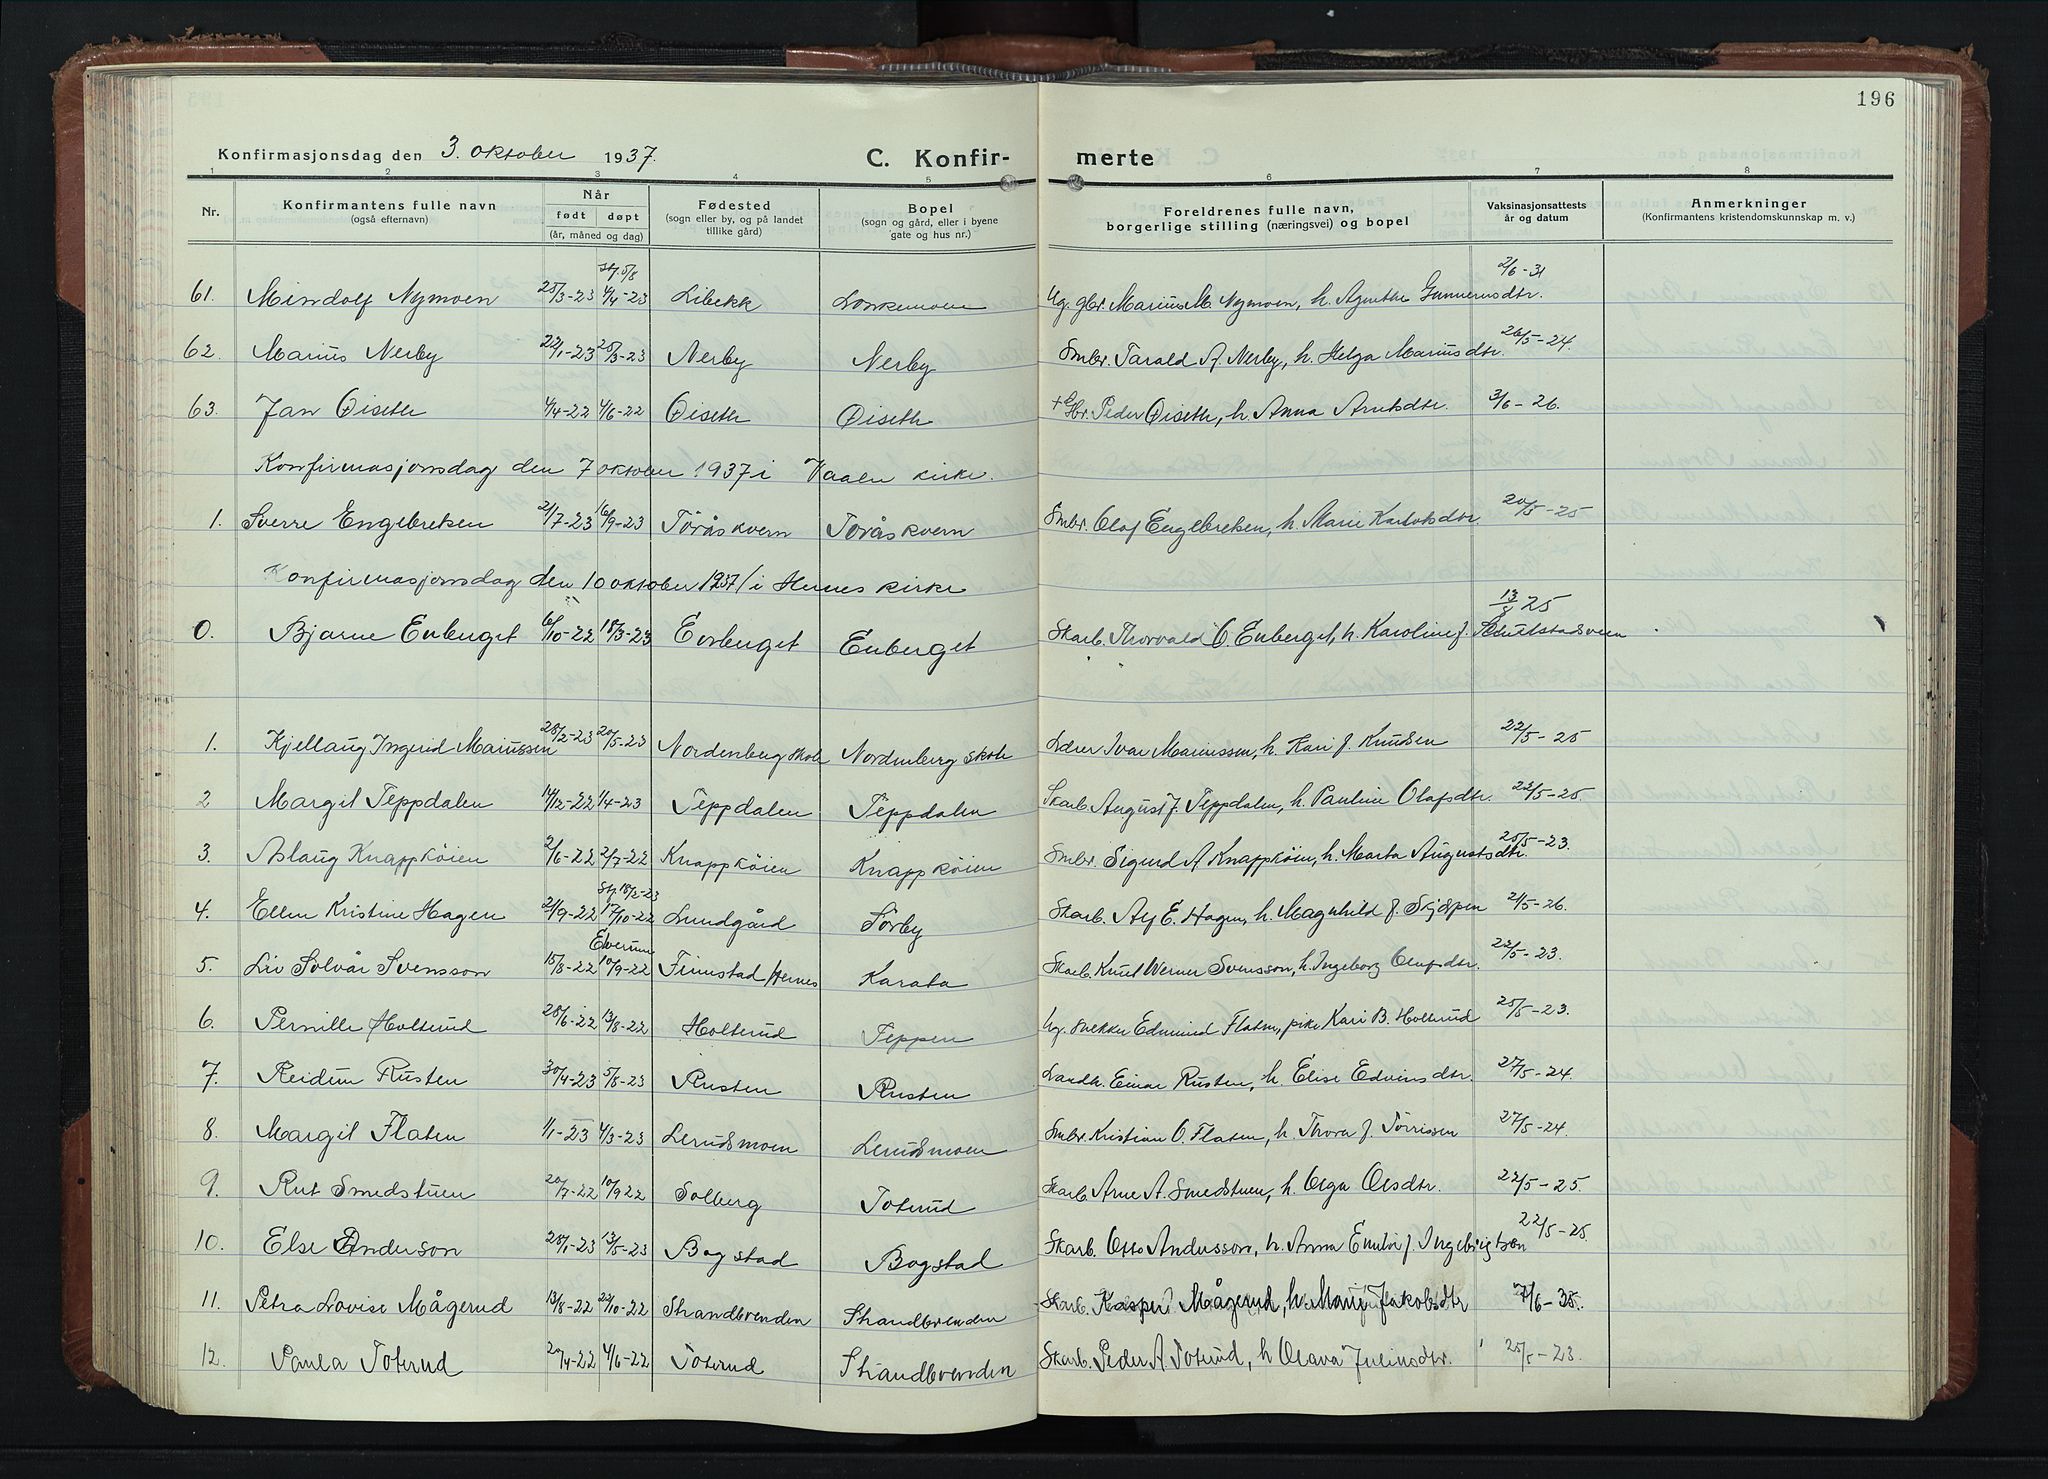 196
Konfirmasjonsdag den 3. oktober 1937. C. Konfir- merte
1 2 3 4 5 6 7 8
Nr. Konfirmantens fulle navn (også efternavn) Når født døpt (år, måned og dag) Fødested (sogn eller by, og på landet tillike gård) Bopel (sogn og gård, eller i byene gate og hus nr.) Foreldrenes fulle navn, borgerlige stilling (næringsvei) og bopel Vaksinasjonsattests år og datum Anmerkninger (Konfirmantens kristendomskunnskap m. v.)
61. Mindolf Nymoen 25/3-23 4/4-23 st. 5/8 Libekk Lonkemoen Ug. gbr. Marius M. Nymoen, h. Agnethe Gunnerusdtr. 2/6-31
62. Marius Nerby 22/1-23 25/3-23 Nerby Nerby Smbr. Tarald A. Nerby, h. Helga Mariusdtr. 26/5-24.
63. Jan Øiseth 4/4-22 4/6-22 Øiseth Øiseth + Gbr. Peder Øiseth, h. Anna Arntsdtr. 3/6-26.
Konfirmasjonsdag den 7 oktober 1937 i Vaaler kirke.
1. Sverre Engebretsen 21/7-23 16/9-23 Töråskvern Toråskvern Smbr. Olaf Engebretsen, h. Marie 20/5-25
Konfirmasjonsdag den 10 oktober 1937 i Hernes kirke
0. Bjarne Enberget 6/10-22 18/3-23 Enberget Enberget Skarb. Thorvald O. Enberget, h. Karoline f. Schultstadsveen 13/8 25
1. Kjellaug Ingerid Mariussen 28/2-23 20/5-23 Nordenberg skole Nordenberg skole Lærer Ivar Mariussen, h. Kari f. Knudsen 22/5-25
2 Margit Teppdalen 14/12-22 1/4-23 Teppdalen Teppdalen Skarb. August J. Teppdalen, h. Pauline Olafsdtr. 22/5-25.
3. Aslaug Knappköien 2/6-22 2/7-22 Knappköien Knappköien Smbr. Sigurd A Knappköien, h. Marta Augustsdtr. 25/5-23.
4. Ellen Kristine Hagen 21/9-22 17/10-22 St. 18/2-23 Lundgård Sörby Skarb. Alf E. Hagen, h. Magnhild f. Skjæpen 21/5-26.
5. Liv Solvår Svensson 15/8-22 Elverum 10/9-22 Finstad Hernes Karata Skarb. Knut Werner Svensson, h. Ingeborg Olafsdtr. 22/5-23.
6. Pernille Holterud 28/6-22 13/8-22 Holterud Teppen Ug. snekker Edmund Flaten, pike Kari B. Holterud 25/5-23.
7. Reidun Rusten 30/4-23 5/8-23 Rusten Rusten Landh. Einar Rusten, h. Elise Edvinsdtr. 27/5-24.
8. Margit Flaten 1/1-23 4/3-23 Lerudsmoen Lerudsmoen Smbr. Kristian O. Flaten, h. Thora f. Törrissen 27/5-24.
9. Rut Smedstuen 20/7-22 10/9 22 Solberg Toterud Skarb. Arne A. Smedstuen, h. Olga Olsdtr. 22/5-25.
10. Else Anderson 28/1-23 13/5-23 Bogstad Bogstad Skarb. Otto Andersson, h. Anna Emilie f. Ingebrigtsen 22/5-25.
11. Petra Lovise Mågerud 13/8-22 22/10-22 Strandbrenden Strandbrenden Skarb. Kasper Mågerud, h. Marie Jakobsdtr 7/6-35.
12. Paula Toterud 20/4-22 4/6-22 Toterud Strandbrenden Skarb. Peder A. Toterud, h Olava Juliusdtr. 25/5-23.